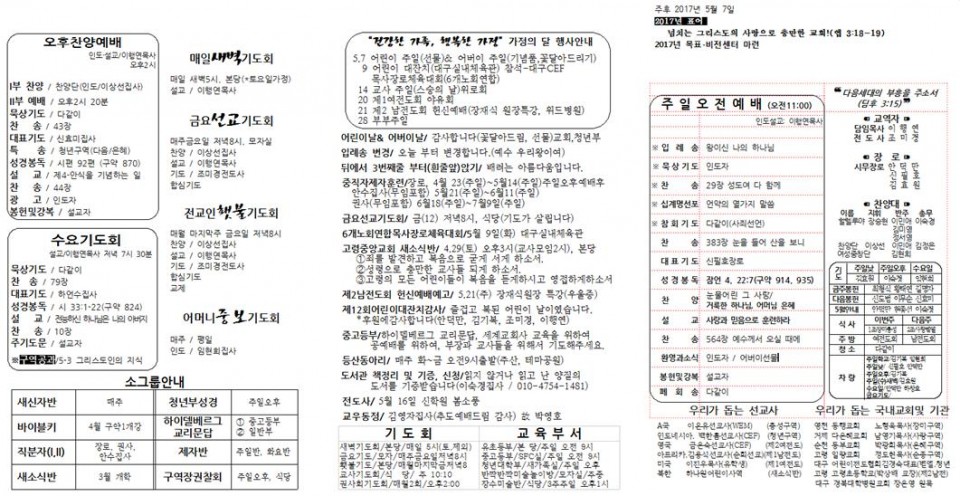 오후찬양예배
인도·설교/이행연목사
오후2시
I부 찬양 / 찬양단(인도/이상선집사)
II부 예배 / 오후2시 20분
묵상기도 / 다같이
찬 송 / 43장
대표기도 / 신효미집사
특 송 / 청년구역(다음/은혜)
성경봉독 / 시편 92편 (구약 870)
설 교 / 제4·안식을 기념하는 일
찬 송 / 44장
광 고 / 인도자
봉헌및강복 / 설교자
수요기도회
설교/이행연목사 저녁 7시 30분
묵상기도 / 다같이
찬 송 / 79장
대표기도 / 하연수집사
성경봉독 / 시 33:1-22(구약 824)
설 교 / 전능하신 하나님은 나의 아버지
찬 송 / 10장
주기도문 / 설교자
※구역공과/5-3 그리스도인의 지식
매일새벽기도회
매일 새벽5시, 본당(*토요일가정)
설교 / 이행연목사
금요선교기도회
매주금요일 저녁8시, 모자실
찬양 / 이상선집사
설교 / 이행연목사
기도 / 조미경전도사
합심기도
전교인행복기도회
매월 마지막주 금요일 저녁8시
찬양 / 이상선집사
설교 / 이행연목사
기도 / 조미경전도사
합심기도
교제
어머니중보기도회
매주 / 평일
인도 / 임현희집사
소그룹안내
새신자반 매주 청년부성경 주일오후
바이블키 4월 구약1개강 하이델베르그 교리문답 ① 중고등부 ② 일반부
직분자(I,II) 장로, 권사, 안수집사 제자반 주일반, 화요반
새소식반 3월 개학 구역장권찰회 주일오후, 식당
"건강한 가족, 행복한 가정" 가정의 달 행사안내
5,7 어린이 주일(선물)& 어버이 주일(기념품,꽃달아드리기)
9 어린이 대잔치(대구실내체육관) 참석-대구CEF
목사장로체육대회(6개노회연합)
14 교사 주일(스승의 날)위로회
20 제1여전도회 야유회
21 제2 남전도회 헌신예배(장재식 원장특강, 위드병원)
28 부부주일
어린이날& 어버이날/ 감사합니다(꽃달아드림, 선물)교회,청년부
입례송 변경/ 오늘 부터 변경합니다.(예수 우리왕이여)
뒤에서 3번째줄 부터(흰줄앞)앉기/ 배려는 아름다움입니다.
중직자제자훈련/장로, 4월 23(주일)~5월14(주일)주일오후예배후
안수집사(무임포함) 5월21(주일)~6월11(주일)
권사(무임포함) 6월18(주일)~7월9(주일)
금요선교기도회/ 금(12) 저녁8시, 식당(기도가 살립니다)
6개노회연합목사장로체육대회/5월 9일(화) 대구실내체육관
고령중앙교회 새소식반/ 4,29(토) 오후3시(교사모임2시), 본당
①죄를 발견하고 복음으로 굳게 서게 하소서.
②성령으로 충만한 교사들 되게 하소서.
③고령의 모든 어린이들이 복음을 듣게하시고 영접하게하소서
제2남전도회 헌신예배예고/ 5,21(주) 장재식원장 특강(우울증)
제12회어린이대잔치감사/ 즐겁고 복된 어린이 날이였습니다.
*후원에감사합니다(안덕만, 김기복, 조미경, 이행연)
중고등부/하이델베르그 교리문답, 세계교회사 교육을 위하여
공예배를 위하여, 부장과 교사들을 위해서 기도해주세요.
등산동아리/ 매주 화~금 오전9시출발(주산, 테마공원)
도서관 책정리 및 기증, 신청/읽지 않거나 읽고 난 양질의
도서를 기증받습니다(이숙경집사 / 010-4754-1481)
전도사/ 5월 16일 신학원 봄소풍
교우동정/ 김영자집사(추도예배드림 감사) 故 박영호
기도회 교육부서
새벽기도회/본당/매일 5시(토.제외) 유초등부/본 당/주일 오전 9시
금요기도회/모자/매주금요일저녁8시 중고등부/SFC실/주일 오전 9시
횃불기도/본당/매월마지막금저녁8 청년대학부/새가족실/주일 오후
교사기도회/식 당/ 주 1010 반짝반짝미술놀이방/모자실/주중
권사회기도회/매월2회/오후2:00 장수미술반/식당/3주주일 오후1시
주후 2017년 5월 7일
2017년 표어
넘치는 그리스도의 사랑으로 충만한 교회!(엡 3:18-19)
2017년 목표-비전센터 마련
주일오전예배 (오전11:00)
인도설교: 이행연목사
※ 입 례 송 왕이신 나의 하나님
※ 묵상기도 인도자
※ 찬 송 29장 성도여 다 함께
※ 십계명선포 언약의 열가지 말씀
※ 참회기도 다같이(사죄선언)
찬 송 383장 눈을 들어 산을 보니
대표기도 신필호장로
성경봉독 잠언 4, 22:7(구약 914, 935)
찬 양 눈물어린 그 사랑/
거룩한 하나님, 어머님 은혜
설 교 사랑과 믿음으로 훈련하라
찬 송 564장 예수께서 오실 때에
환영과소식 인도자 / 어버이선물
봉헌및강복 설교자
폐 회 송 다같이
"다음세대의 부흥을 주소서
(딤후 3:15)"
교역자
담임목사 이행연
전도사 조미경
장로
시무장로 안덕만
신필호
김효원
찬양대
이름 지휘 반주 총무
할렐루야 장승현 이민애 이숙경
김미영
찬양단 이상선 이민애 김정은
여성중창단 김현희
기도 주일낮 주일오후 수요일
금주봉헌
다음봉헌
5월안내
식사 이번주 다음주
주방 여전도회 남전도회
청소 다같이
차량
우리가 돕는 선교사
A국 이은유선교사(WEM) (충성구역)
인도네시아, 백한흠선교사(CEF) (청년구역)
영국 금은숙선교사(CEF) (제2여전도)
아프리카,김용식선교사(순회선교)(제1남전도)
미국 이진우유학생) (제1여전도)
북한 하나원어린이사역 (새소식반)
우리가 돕는 국내교회및 기관